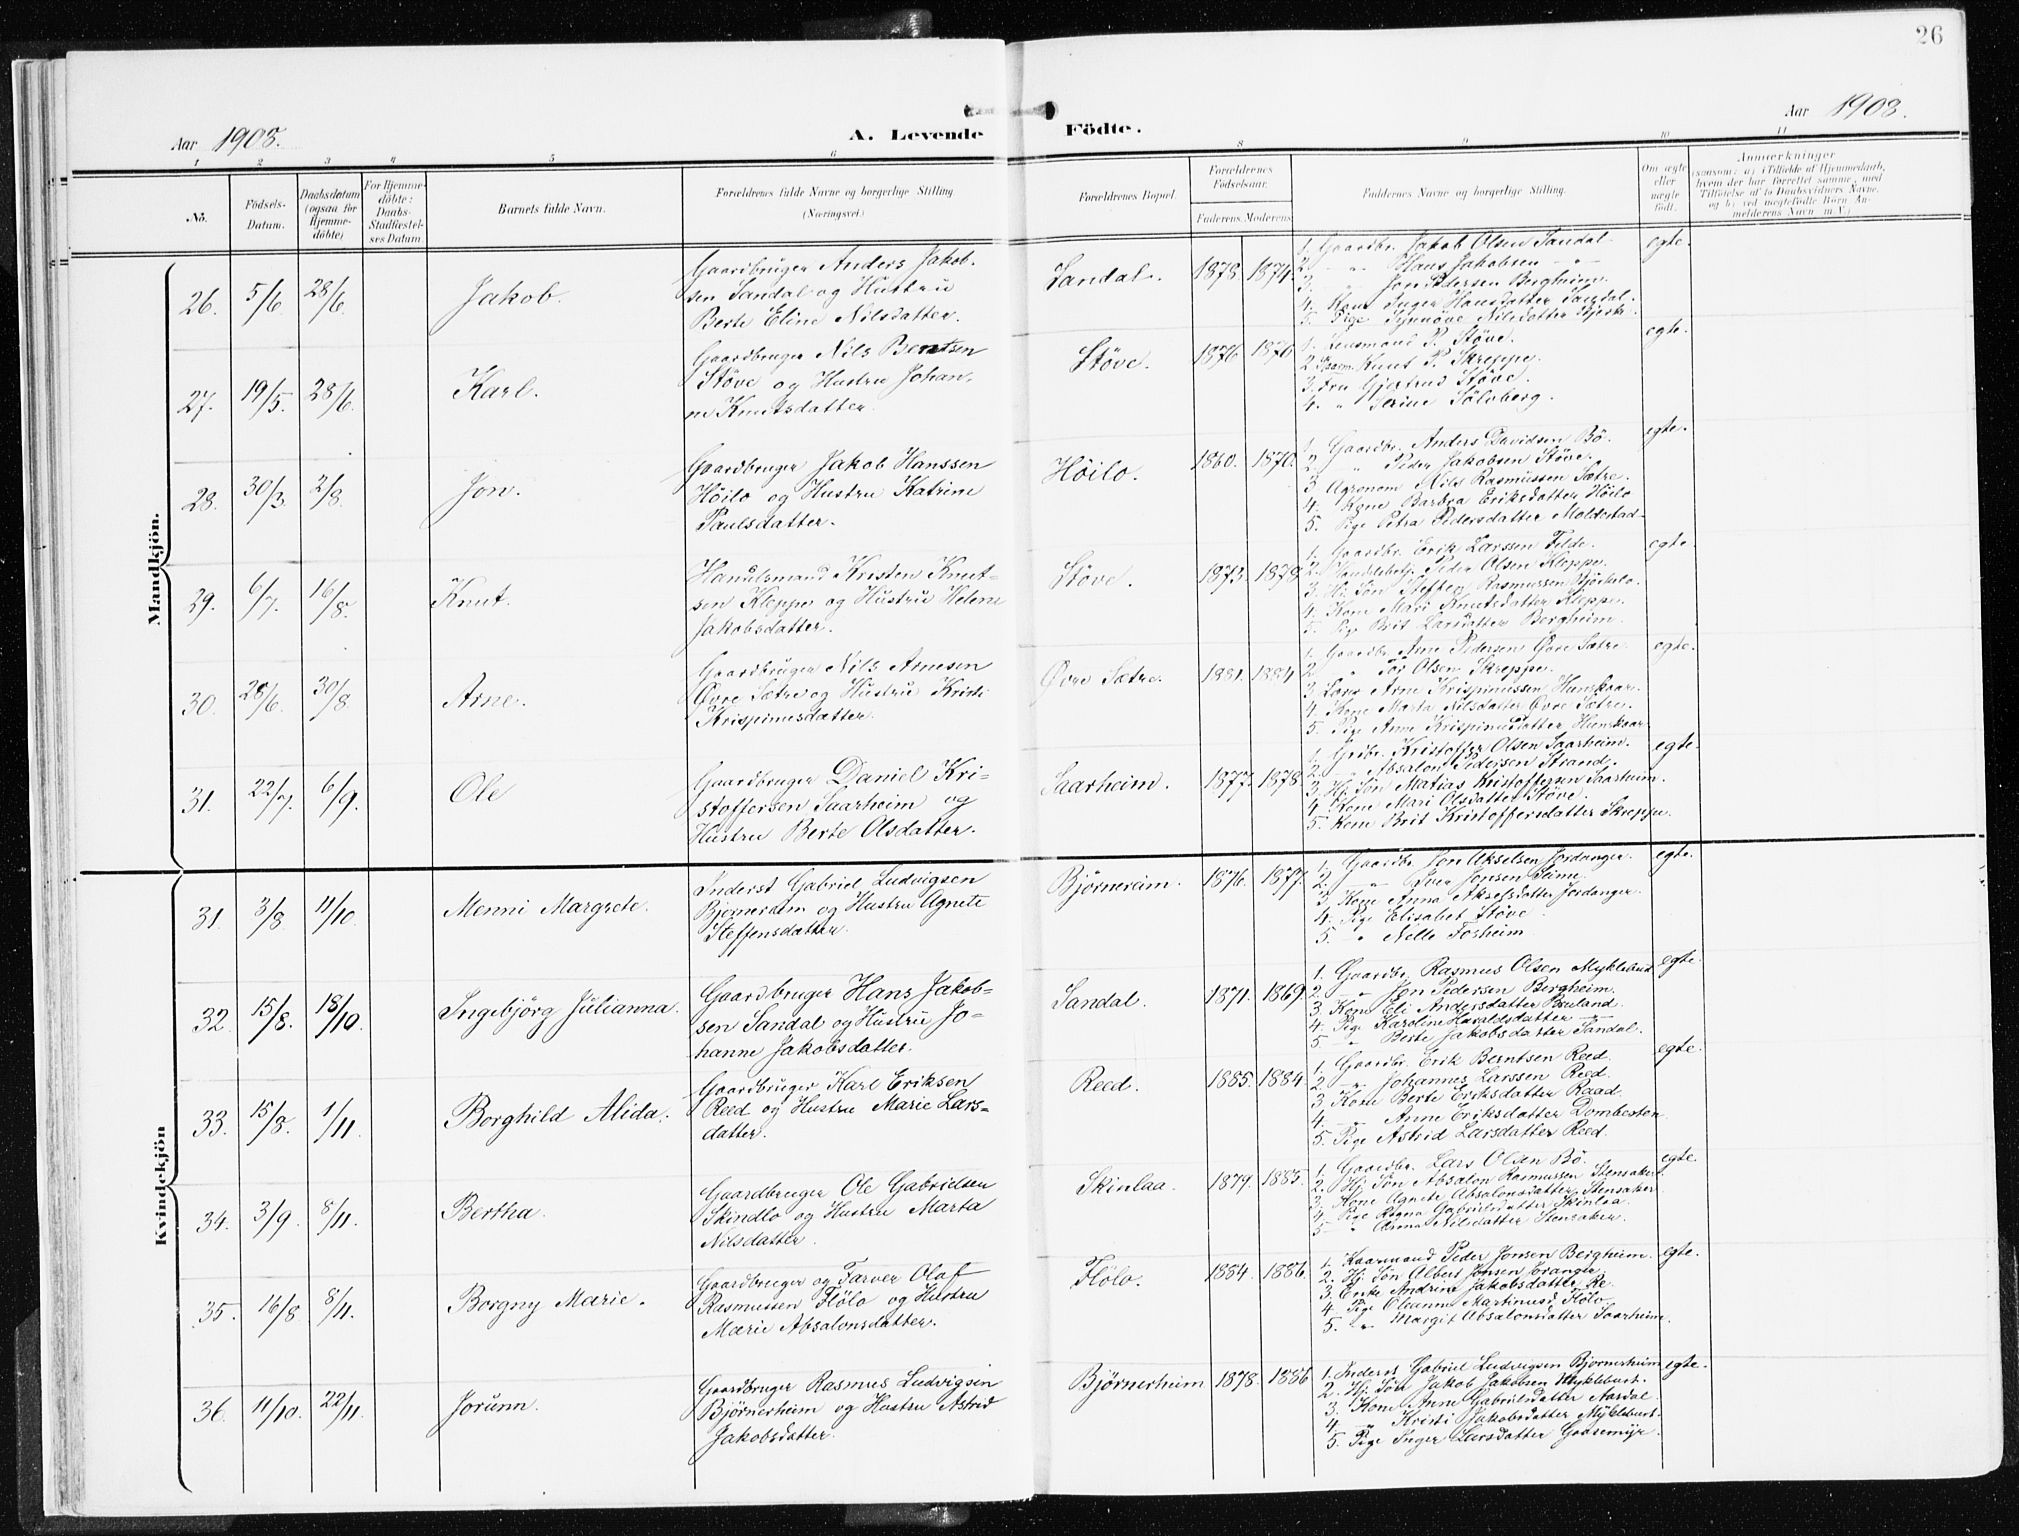 26
Aar 1908.
A. Levende Födte.
Aar 1908.
1 2 3 4 5 6 8 9 10 11
No.
Födsels-Datum.
Daabsdatum (ogsaa for Hjemme-döbte)
For Hjemme-döbte: Daabs-Stadfæstel-ses Datum
Barnets fulde Navn.
Forældrenes fulde Navne og borgerlige Stilling (Næringsvei.)
Forældrenes Bopæl.
Forældrenes Födselsaar.
Faderens. Moderens.
Faddernes Navne og borgerlige Stilling.
Om ægte eller uægte födt.
Anmærkninger
(saasom: a) i Tilfælde af Hjemmedaab, hvem der har forrettet samme, med Tilföielse af to Daabsvidners Navne, og b) ved uægtefödte Börn An-melderens Navn m. V.)
Mandkjön.
26. 5/6 28/6 Jakob.
Gaardbruger Anders Jakob-
sen Sandal og Hustru
Berte Eline Nilsdatter.
Sandal. 1878 1874.
1. Gaardbr. Jakob Olsen Sandal.
2. — " Hans Jakobsen — " —
3. — " Jon Pedersen Bergheim.
4. Kone Inger Hansdatter Sandal.
5. Pige Synnöve Nilsdatter
egte.
27. 19/5. 28/6. Karl.
Gaardbruger Nils Berntsen
Støve og Hustru Johan-
ne Knutsdatter.
Støve. 1876 1876
1. Lensmand P. Støve.
2. Knut P. Skreppe.
3. Fru Gjertrud Støve.
4. " Serine Sölvberg.
egte.
28. 30/3. 2/8. Jon.
Gaardbruger Jakob Hanssen
Höilo og Hustru Katrine
Paulsdatter.
Höilo. 1860. 1870.
1. Gaardbr. Anders Davidsen Bö.
2. " Peder Jakobsen Støve.
3 Agronom Nils Rasmussen Sætre.
4. Kone Bardra Eriksdatter Höilo
5. Pige Petra Pedersdatter Moldestad-
egte.
29. 6/7. 16/8. Knut.
Handelsmand Kristen Knut-
sen Kloppe og Hustru Helene
Jakobsdatter.
Støve. 1873. 1879.
1. Gaardbr. Erik Larssen Felde.
2. Handelsbetj. Peder Olsen Kloppe.
3. Hj. Søn Steffen Rasmussen Björkelo.
4. Kone Mari Knutsdatter Kloppe.
5. Pige Brit Larsdatter Bergheim.
egte.
30. 28/6. 30/8 Arne.
Gaardbruger Nils Arnesen
Øvre Sætre og Hustru Kristi
Krispinusdatter.
Øvre Sætre. 1881. 1884
1. Gaardbr. Arne Pedersen Øvre Sætre.
2. " Tor Olsen Skreppe.
3. Arne Krispinussen Hunskaar.
4. Kone Marta Nilsdatter Øvre Sætre.
5. Pige Anne Krispinusdatter Hunskaar
egte.
31. 22/7. 6/9. Ole
Gaardbruger Daniel Kri-
stoffersen Saarheim og
Hustru Berte Olsdatter.
Saarheim. 1877. 1878.
1. Grdbr. Kristoffer Olsen Saarheim.
2. " Absalon Pedersen Strand.
3. Hj. Søn Matias Kristoffersen Saarheim.
4. Kone Mari Olsdatter Støve.
5. Kone Brit Kristoffersdatter Skreppe.
egte.
Kvindekjön
31. 3/8. 11/10. Menni Margrete.
Inderst Gabriel Ludvigsen
Björnereim og Hustru Agnete
Steffensdatter.
Björnereim. 1876. 1877.
1. Gaardbr. Jon Akselsen Jordanger.
2. — " — Iver Jonsen Seime.
3 Kone Anna Akselsdatter Jordanger.
4. Pige Elisabet Støve.
5. — " Nelle Forheim.
egte.
32. 15/8. 18/10. Ingebjörg Julianna.
Gaardbruger Hans Jakob-
sen Sandal og Hustru Jo-
hanne Jakobsdatter.
Sandal. 1871. 1869.
1. Gaardbr. Rasmus Olsen Myklebust
2. — " Jon Pedersen Bergheim.
3. Kone Eli Andersdatter Bruland.
4. Pige Karoline Haraldsdatter — " —
5. — " Berte Jakobsdatter Sandal.
egte.
33. 15/8. 1/11. Borghild Alida.
Gaardbruger Karl Eriksen
Reed og Hustru Marie Lars-
datter.
Reed. 1885. 1884.
1. Gaardbr. Erik Berntsen Reed.
2. — " Johannes Larssen Reed.
3. Kone Berte Eriksdatter Raad.
4. — " — Anne Eriksdatter Dombesten
5. Pige Astrid Larsdatter Reed.
egte.
34. 3/9. 8/11. Bertha.
Gaardbruger Ole Gabrielsen
Skindlo og Hustru Marta
Nilsdatter.
Skinlaa. 1879. 1885.
1. Gaardbr. Lars Olsen Bö.
2. Hj. Søn Absalon Rasmussen Stensaker.
3. Kone Agnete Absalonsdatter Stensaker.
4. Pige Ragna Gabrielsdatter Skinlaa.
5. — " Anna Nilsdatter Stensaker.
egte.
35. 16/8 8/11. Borgny Marie.
Gaardbruger og Farver Olaf
Rasmussen Flölo og Hustru
Marie Absalonsdatter.
Flölo. 1884. 1886.
1. Kaarmand Peder Jonsen Bergheim.
2. Hj. Søn Albert Jonsen Eranger.
3. Enke Andrine Jakobsdatter Re.
4. Pige Oleanna Martinusd. Flölo.
5. — " Margit Absalonsdatter Saarheim.
egte.
36. 11/10. 22/11. Jorunn.
Gaardbruger Rasmus Ludvigsen
Björnerheim og Hustru Astrid
Jakobsdatter.
Björnerheim 1878. 1886
1. Inderst Gabriel Ludvigsen Bjornerheim
2. Hj. Søn Jakob Jakobsen Myklebust.
3. Kone Anne Gabrielsdatter Aardal.
4. — " — Kristi Jakobsdatter Myklebust.
5. Pige Inger Larsdatter Gaasemyr.
egte.